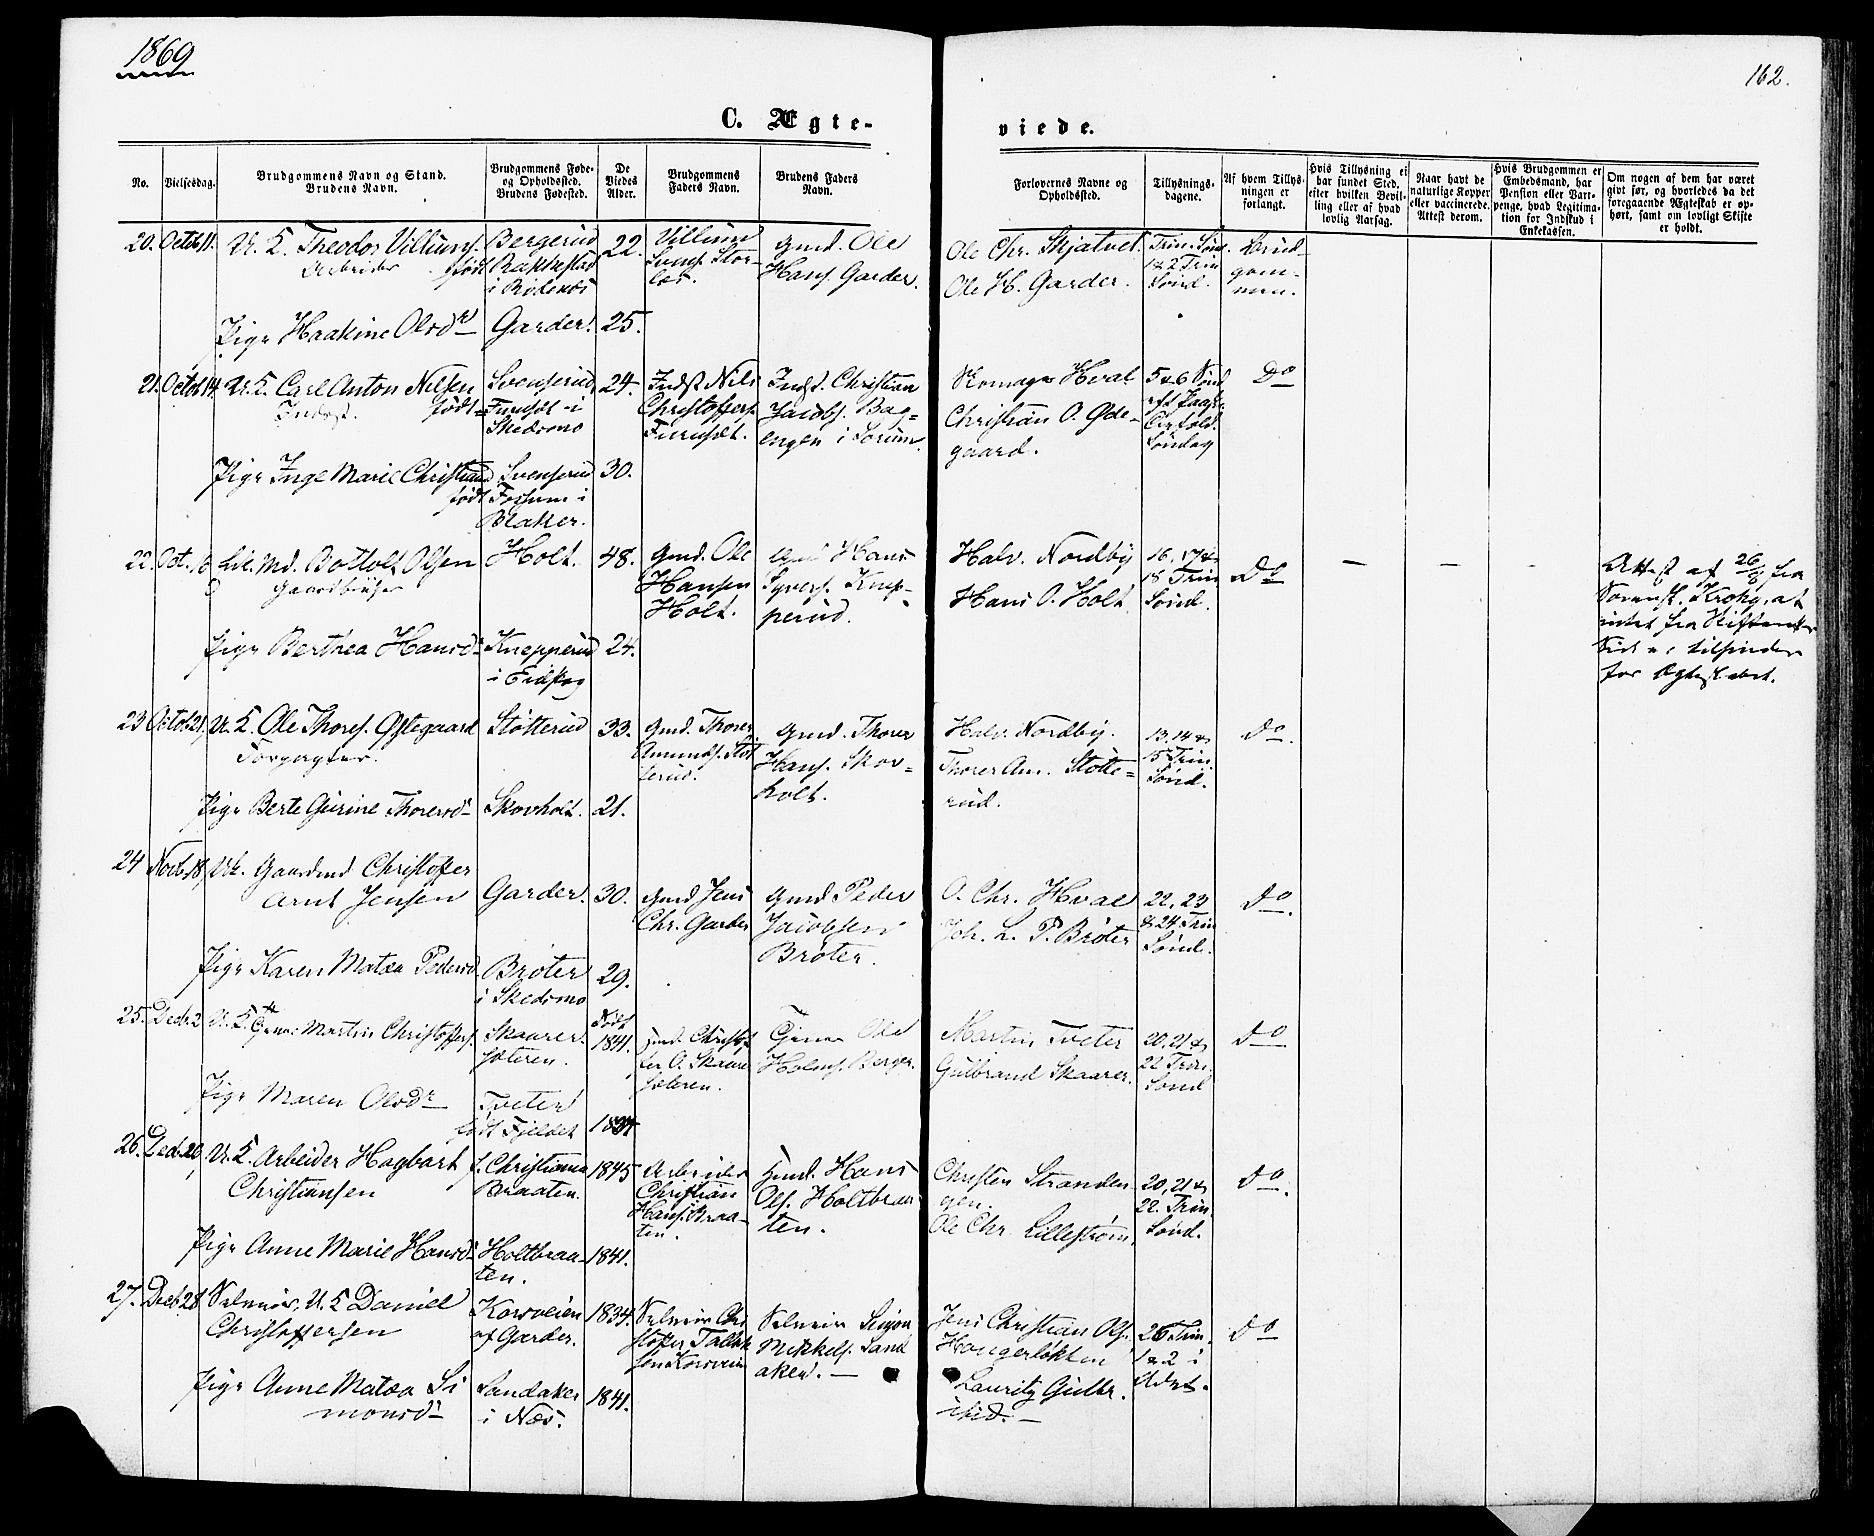 1869
162.
C. Ægte-
viede.
No.
Vielsesdag.
Brudgommens Navn og Stand.
Brudens Navn.
Brudgommens Føde-
og Opholdssted.
Brudens Fødested.
De
Viedes
Alder.
Brudgommens
Faders Navn.
Brudens Faders
Navn.
Forlovernes Navne og
Opholdssted.
Tillysnings-
dagene.
Af hvem Tillys-
ningen er
forlangt.
Hvis Tillysning ei
har fundet Sted,
efter hvilken Bevil-
ling eller af hvad
lovlig Aarsag.
Naar havt de
naturlige Kopper
eller vaccinerede.
Attest derom.
Hvis Brudgommen er
Embedsmand, har
Pension eller Vart-
penge, hvad Legitima-
tion for Indskud i
Enkekassen.
Om nogen af dem har været
givt før, og hvorledes da det
foregaaende Ægteskab er op-
hørt, samt om lovligt Skifte
er holdt.
20. Octob. 11.
U. K. Theodor Villums.
Arbeider født
Bergerud
Rakkestad
i Rødenæs
22.
Villum
Svens. Stor-
Gmd. Ole
Hans. Garder.
Ole Chr. Skjatvet.
Ole H. Garder.
Trin. Sønd.
1 & 2 Trin
Sønd.
Brud-
gom-
men.
Pige Haakine Olsdr
Garder.
25.
21. Octob. 14.
U. K. Carl Anton Nilsen
Indst. født
Svenserud
Furuset i
Skedsmo
24.
Indst Nils
Christoffers.
Furuset.
Indst. Christian
Jacobs. Bag-
engen i Sørum.
Christian O. Øde-
gaard.
5 & 6 Sønd
eft Paaske
Søndag
Do
Pige Inge Marie Christiansd
født
Svenserud
Fossum i
Blaker.
30.
22. Oct. 16
Ek. Md. Bottolv Olsen
Gaardbruger
Holt.
48.
Gmd. Ole
Hansen
Holt.
Gmd Hans
Syvers. Knep-
perud.
Halv. Nordby
Hans O. Holt.
16. 17 &
18 Trin
Sønd.
Do
Attest af 26/8 fra
Sorensk. Krohg, at
intet fra Skiftets
Side er til hinder
for Ægteskabet.
Pige Berthea Hansd.
Knepperud
i Eidskog
24.
23 Octob 21,
U. K. Ole Thores. Østegaard
Forpagter.
Støtterud
33.
Gmd. Thorer
Amunds. Støt
terud.
Gmd. Thorer
Hans. Skov-
holt.
Halv. Nordby.
Thorer Am. Støtte-
rud.
13. 14 &
15 Trin.
Sønd.
Do.
Pige Berte Gurine Thorersd
Skovholt.
21.
24 Novb 18,
Uk. Gaardmd Christoffer
Arnt Jensen
Garder.
30.
Gmd Jens
Chr. Garder
Gmd Peder
Jacobsen
Brøter.
O. Chr. Hval
Joh. L. P. Brøter
22, 23
& 24 Trin
Sønd.
Do.
Pige Karen Matea Pedersd.
Brøter
i Skedsmo
29.
25. Decb. 2
U. K. Martin Christoffers.
Skaarer-
sæteren.
Født
1841.
Hmd. Christof
fer O. Skaarer
sæteren.
Tjener Ole
Holms. Berger.
Martin Tveter
Gulbrand Skaarer.
20, 21 &
22 Trin.
Sønd
Do
Pige Maren Olsdr
Tveter
født Fjeldet
26. Decb. 26,
U. K. Arbeider Hagbart
Christiansen
f. Christiania
Braaten.
1845
Arbeider
Christian
Hans. Braa-
ten.
Hmd. Hans
Ols. Holtbraa
ten.
Christen Stranden
gen.
Ole Chr. Lillestrøm.
20, 21 &
22. Trin.
Sønd.
Do.
Pige Anne Marie Hansd.
Holtbraa-
ten.
1841.
27. Decb 28
Selveier, U. K Daniel
Christoffersen
Korsveien
af Garder.
1834.
Selveier Chri
stoffer
Korsveien
Selveier Simon
Mikkels. Sand
aker. —
Jens Christian Ols.
Haugerløkken
Lauritz Gulbr.
ibid. —
26 Trin.
1 & 2 i
Advt.
Do
Pige Anne Matea Si
monsd
Sandaker
i Næs.
1841.